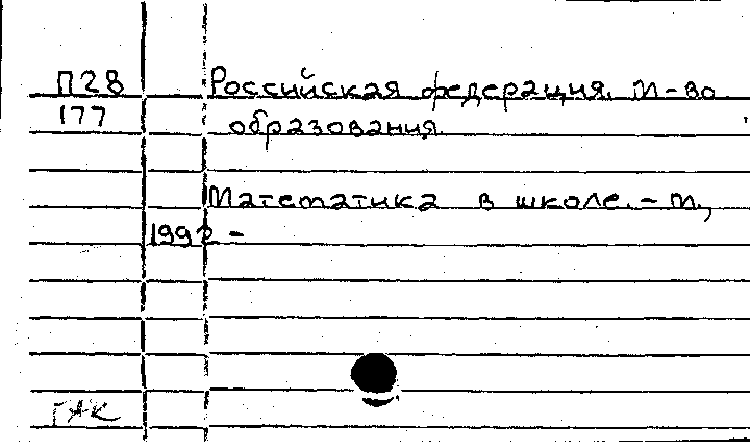 П28 Российская федерация. М-во
177 образования.
Математика в школе. - М.,
1992 -
ГАК